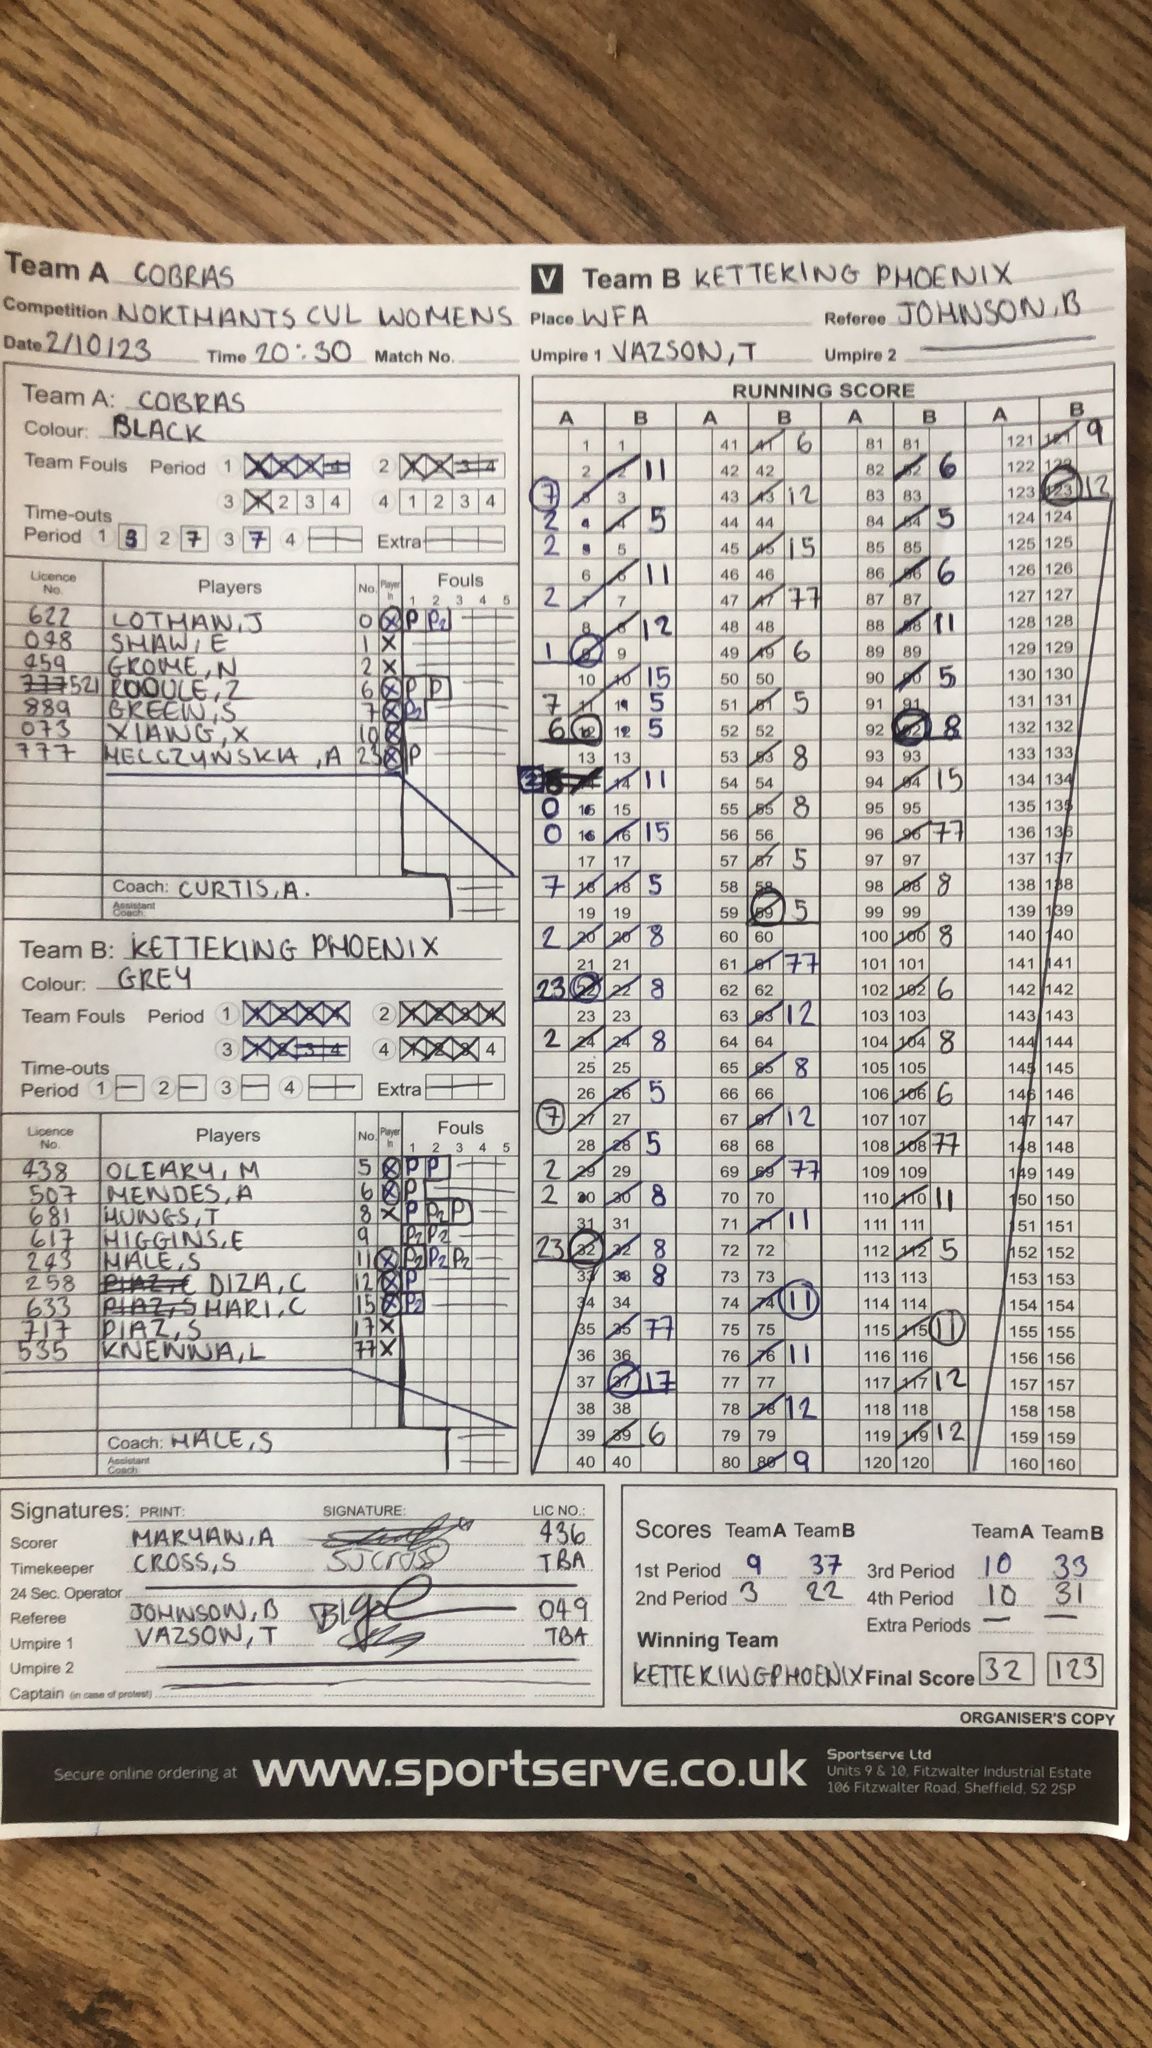 Team A COBRAS
V Team B KETTERING PHOENIX
Competition NORTHANTS CUL WOMENS Place WFA Referee JOHNSON, B
Date 2/10/23 Time 20:30 Match No. Umpire 1 VAZSON, T Umpire 2
Team A: COBRAS
Colour: BLACK
Team Fouls Period 1 2
3 1 2 3 4 4 1 2 3 4
Time-outs
Period 1 3 2 7 3 7 4 Extra
Licence No. Players No. Player In Fouls
1 2 3 4 5
622 LOTHAN, J 0 X P P2
048 SHAW, E 1 X
459 GROME, N 2 X
521 ROOULE, Z 6 X P P
889 GREEN, S 7 X P2
073 XIANG, X 10 X
777 MELCZYNSKIA, A 23 X P
Coach: CURTIS, A.
Assistant Coach:
Team B: KETTERING PHOENIX
Colour: GREY
Team Fouls Period 1 2
3 4
Time-outs
Period 1 2 3 4 Extra
Licence No. Players No. Player In Fouls
1 2 3 4 5
438 OLEARY, M 5 X P P
507 MENDES, A 6 X P
681 HUNGS, T 8 X P P2 P
617 HIGGINS, E 9 P2 P2
243 MALE, S 11 X P2 P2 P2
258 DIZA, C 12 X P
633 MARI, C 15 X P2
717 PIAZ, S 17 X
535 KNENNA, L 77 X
Coach: MALE, S
Assistant Coach:
RUNNING SCORE
A B A B A B A B
1 1 41 41 6 81 81 121 121 9
2 2 11 42 42 82 82 6 122 122
7 3 3 43 43 12 83 83 123 123 12
2 4 4 5 44 44 84 84 5 124 124
2 5 5 45 45 15 85 85 125 125
6 6 11 46 46 86 86 6 126 126
2 7 7 47 47 77 87 87 127 127
8 8 12 48 48 88 88 11 128 128
1 9 9 49 49 6 89 89 129 129
10 10 15 50 50 90 90 5 130 130
7 11 11 5 51 51 5 91 91 131 131
6 12 12 5 52 52 92 92 8 132 132
13 13 53 53 8 93 93 133 133
14 14 11 54 54 94 94 15 134 134
0 15 15 55 55 8 95 95 135 135
0 16 16 15 56 56 96 96 77 136 136
17 17 57 57 5 97 97 137 137
7 18 18 5 58 58 98 98 8 138 138
19 19 59 59 5 99 99 139 139
2 20 20 8 60 60 100 100 8 140 140
21 21 61 61 77 101 101 141 141
23 22 22 8 62 62 102 102 6 142 142
23 23 63 63 12 103 103 143 143
2 24 24 8 64 64 104 104 8 144 144
25 25 65 65 8 105 105 145 145
26 26 5 66 66 106 106 6 146 146
7 27 27 67 67 12 107 107 147 147
28 28 5 68 68 108 108 77 148 148
2 29 29 69 69 77 109 109 149 149
2 30 30 8 70 70 110 110 11 150 150
31 31 71 71 11 111 111 151 151
23 32 32 8 72 72 112 112 5 152 152
33 33 8 73 73 113 113 153 153
34 34 74 74 11 114 114 154 154
35 35 77 75 75 115 115 11 155 155
36 36 76 76 11 116 116 156 156
37 37 17 77 77 117 117 12 157 157
38 38 78 78 12 118 118 158 158
39 39 6 79 79 119 119 12 159 159
40 40 80 80 9 120 120 160 160
Signatures: PRINT: SIGNATURE: LIC NO.:
Scorer MARYAN, A 436
Timekeeper CROSS, S SJCROSS TBA
24 Sec. Operator
Referee JOHNSON, B 049
Umpire 1 VAZSON, T TBA
Umpire 2
Captain (in case of protest)
Scores Team A Team B Team A Team B
1st Period 9 37 3rd Period 10 33
2nd Period 3 22 4th Period 10 31
Extra Periods — —
Winning Team
KETTERINGPHOENIX Final Score 32 123
ORGANISER'S COPY
Secure online ordering at www.sportserve.co.uk
Sportserve Ltd
Units 9 & 10, Fitzwalter Industrial Estate
106 Fitzwalter Road, Sheffield, S2 2SP